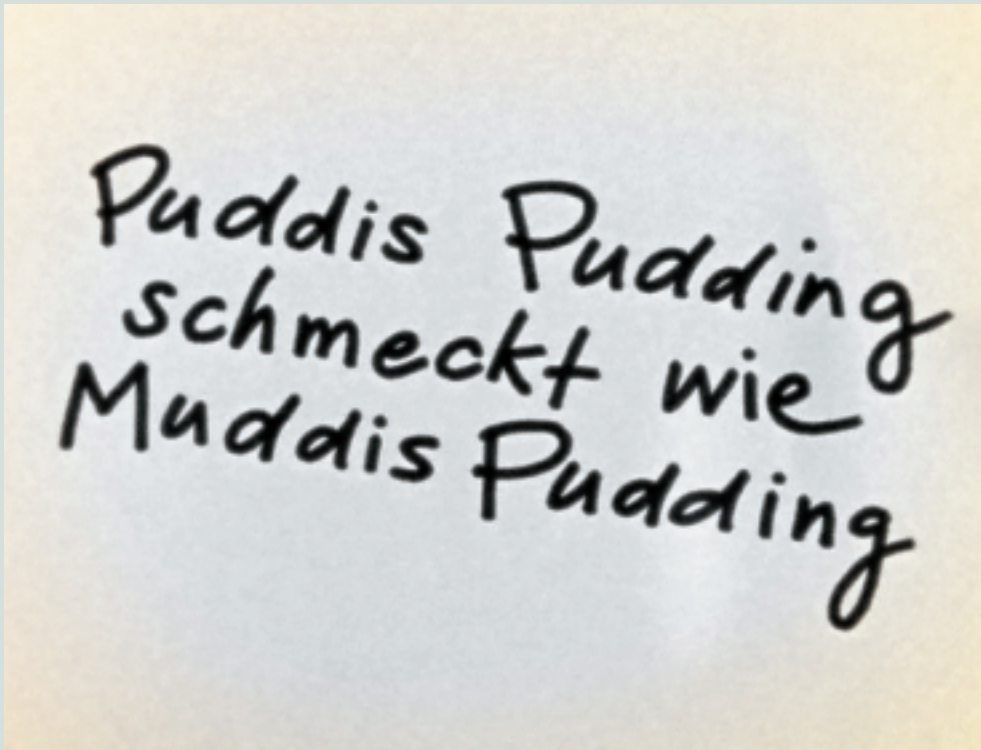 Puddis Pudding
schmeckt wie
Muddis Pudding